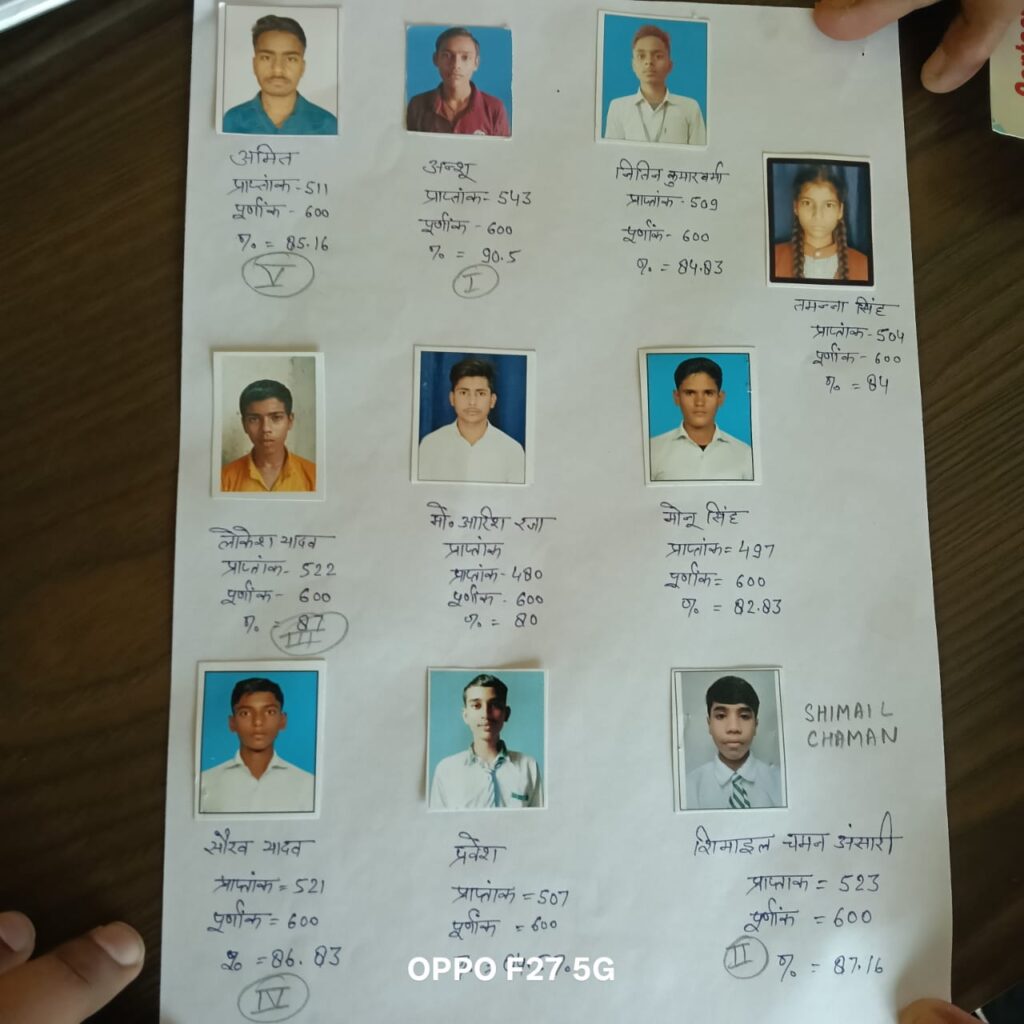 अमित
प्राप्तांक - 511
पूर्णांक - 600
% = 85.16
V
अन्शू
प्राप्तांक - 543
पूर्णांक - 600
% = 90.5
I
नितिन कुमार वर्मा
प्राप्तांक - 509
पूर्णांक - 600
% = 84.83
तमन्ना सिंह
प्राप्तांक - 504
पूर्णांक - 600
% = 84
लोकेश यादव
प्राप्तांक - 522
पूर्णांक - 600
% = 87
III
मो. आरिश रजा
प्राप्तांक
प्राप्तांक - 480
पूर्णांक - 600
% = 80
मोनू सिंह
प्राप्तांक = 497
पूर्णांक = 600
% = 82.83
सौरव यादव
प्राप्तांक = 521
पूर्णांक = 600
% = 86.83
IV
प्रवेश
प्राप्तांक = 507
पूर्णांक = 600
SHIMAIL
CHAMAN
शिमाइल चमन अंसारी
प्राप्तांक = 523
पूर्णांक = 600
II % = 87.16
OPPO F27 5G